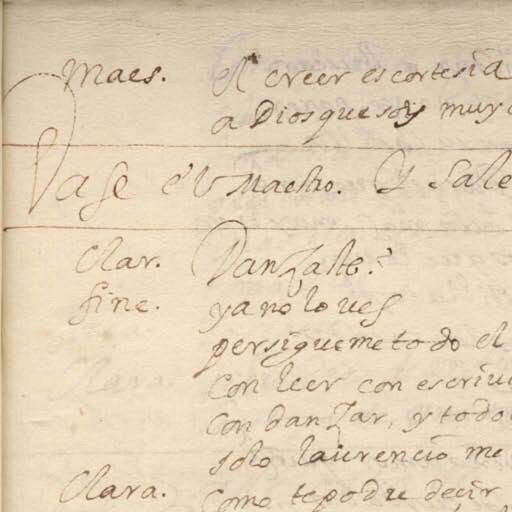 Maes. el creer es cortesia
a Dios que soy muy
Vase el Maestro. Y sale
Clar. Danzaste?
fine. ya no lo ves
persigueme todo el
con leer con escriui
con danzar, y todo
solo laurencio me
Clara. como te podre decir